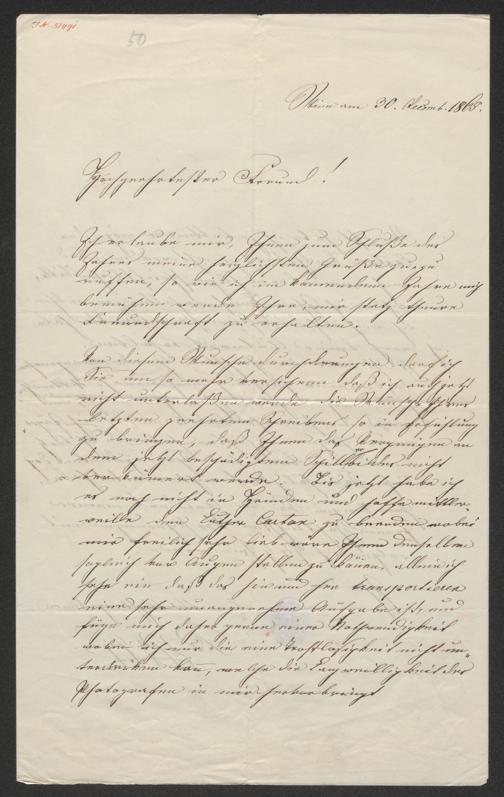 I.N. 57491
50
Wien am 30. Decemb. 1868.
Hochverehrtester Freund!
Ich erlaube mir, Ihnen zum Schluße des
Jahres meine herzlichsten Grüße zuzu
rufen, so wie ich im kommenden Jahre mich
bemühen werde Ihre, mir stets theure
Freundschaft zu erhalten.
Von diesem Wunsche durchdrungen darf ich
Sie um so mehr versichern daß ich auch jetzt
nicht unterlaßen werde die Wünsche Ihres
letzten geehrten Schreibens so in Erfüllung
zu bringen, daß Ihnen das Vergnügen an
dem jetzt beschädigten Schillbilde nicht
verkümert werde. Bis jetzt habe ich
es noch nicht in Händen und hoffe mittler-
weille den Luther Carton zu beenden wobei
mir freilich sehr lieb wäre Ihnen denselben
sogleich vor Augen stellen zu können, allein ich
sehe ein daß das hin und her transportieren
eine sehr unangenehme Aufgabe ist, und
füge mich daher gerne einer Nothwendigkeit
wobei ich nur die eine Trostlosigkeit nicht un-
terdrücken kan, welche die Langweilligkeit des
Photografen in mir hervorbringt